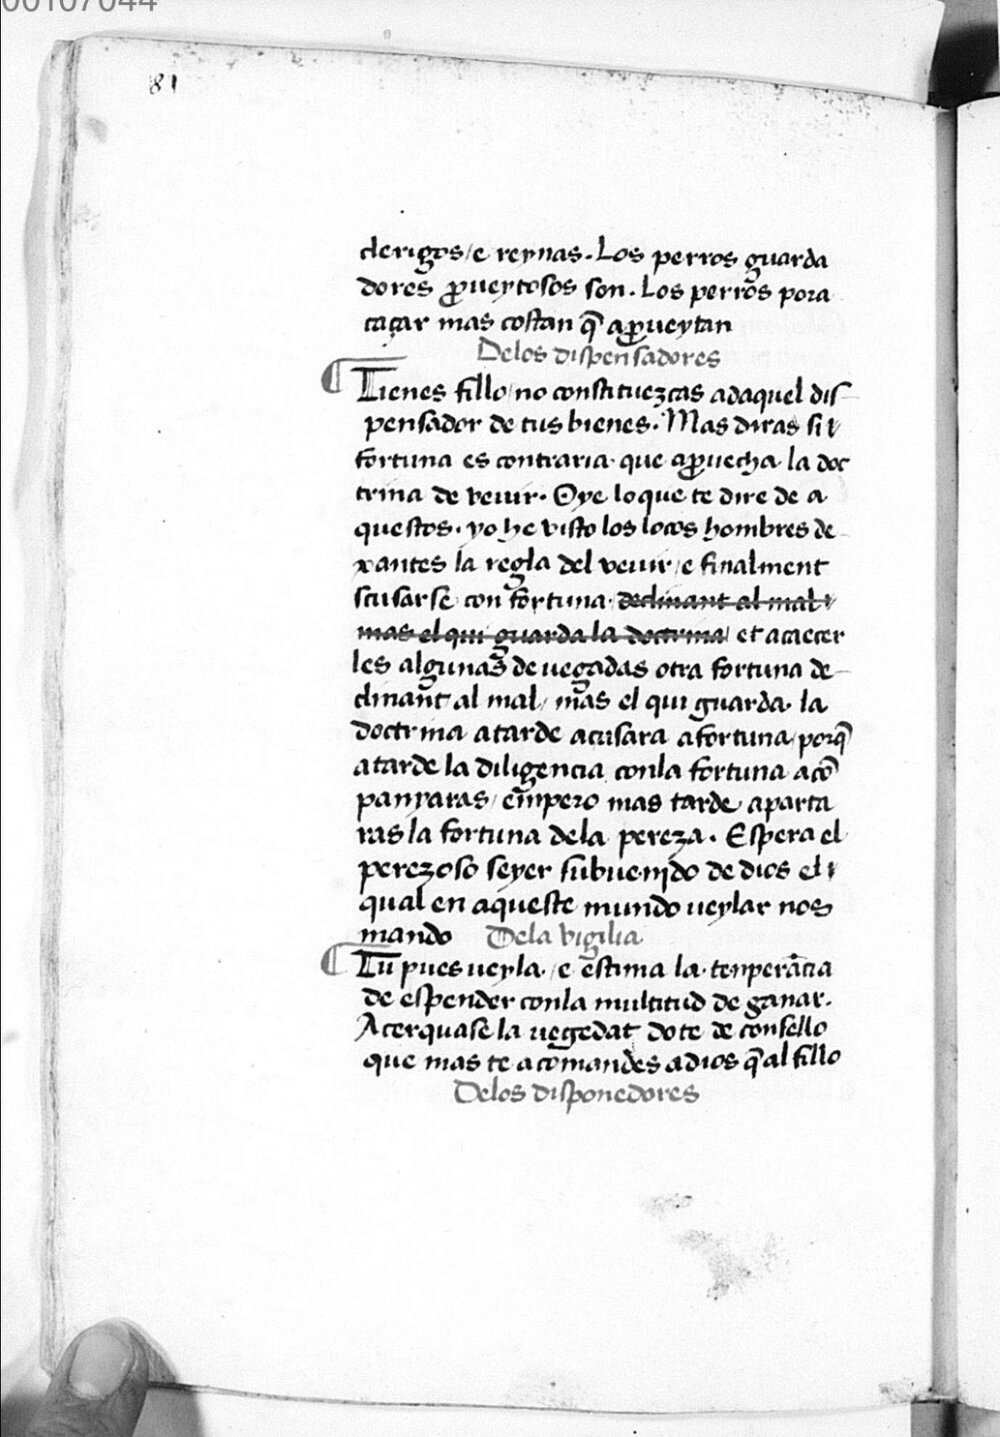 00107044
81
clerigos / e reynas. Los perros guarda
dores ꝓueytosos son. Los perros pora
caçar mas costan q̃ aꝓueytan
Delos dispensadores
¶ Tienes fillo / no constituezcas adaquel dis
pensador de tus bienes. Mas diras si
fortuna es contraria que aꝓuecha la doc
trina de veuir. Oye lo que te dire de a
questos. yo he visto los locos hombres de
xantes la regla del veuir / e finalment
scusarse con fortuna declinant al mal
mas el qui guarda la doctrina / et acaecer
les algunas de uegadas otra fortuna de
clinant al mal / mas el qui guarda la
doctrina atarde acusara afortuna / porq̃
atarde la diligencia conla fortuna acõ
panyaras / empero mas tarde aparta
ras la fortuna dela pereza. Espera el
perezoso seyer subuenido de dios el
qual en aqueste mundo ueylar nos
mando Dela vigilia
¶ Tu pues ueyla / e estima la tenperãcia
de espender conla multitud de ganar.
Acerquase la uegedat dote de consello
que mas te acomandes adios q̃ al fillo
Delos disponedores